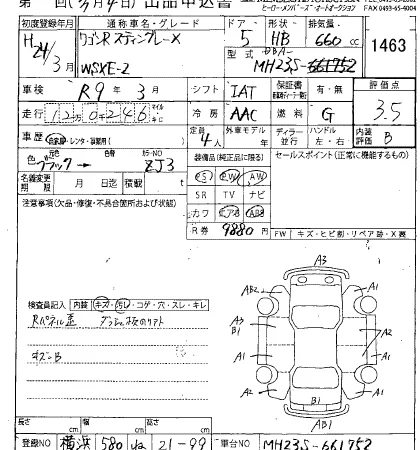 第 回( 3月4日) 出品申込書
ヒーローメンバーズ・オートオークション FAX 0493-65-4004
初度登録年月 通称車名・グレード ドア 形状 排気量
H24/3月 ワゴンRスティングレーX 5 HB 660cc 1463
WSXE-2 型式 DBA- MH23S-661752
車検 R9年3月 シフト IAT 保証書 有・無 評価点
走行 12万0千246 冷房 AAC 燃料 G 3.5
車歴 自家用・レンタ・事業用( ) 定員 4人 外車モデル 年 ディーラー 並行 ハンドル 左・右 内装評価 B
色 元色 ブラック→ 色替 カラーNO ZJ3
装備品(純正品に限る) セールスポイント(正常に機能するもの)
名義変更期限 月 日迄 積載 t
PS PW AW
SR TV ナビ
注意事項(欠品・修復・不具合箇所および状態)
カワ エアB ABS
R券 9880円
FW キズ・ヒビ割・リペア跡・X裏
A3
検査員記入 内装 キズ・汚レ・コゲ・穴・スレ・キレ
AB2 A1
A3 B1 A2
A1 A1
A2 A1
AB1
長さ cm 幅 cm 高さ cm
登録NO 横浜 580 ね 21-99 車台NO MH23S-661752